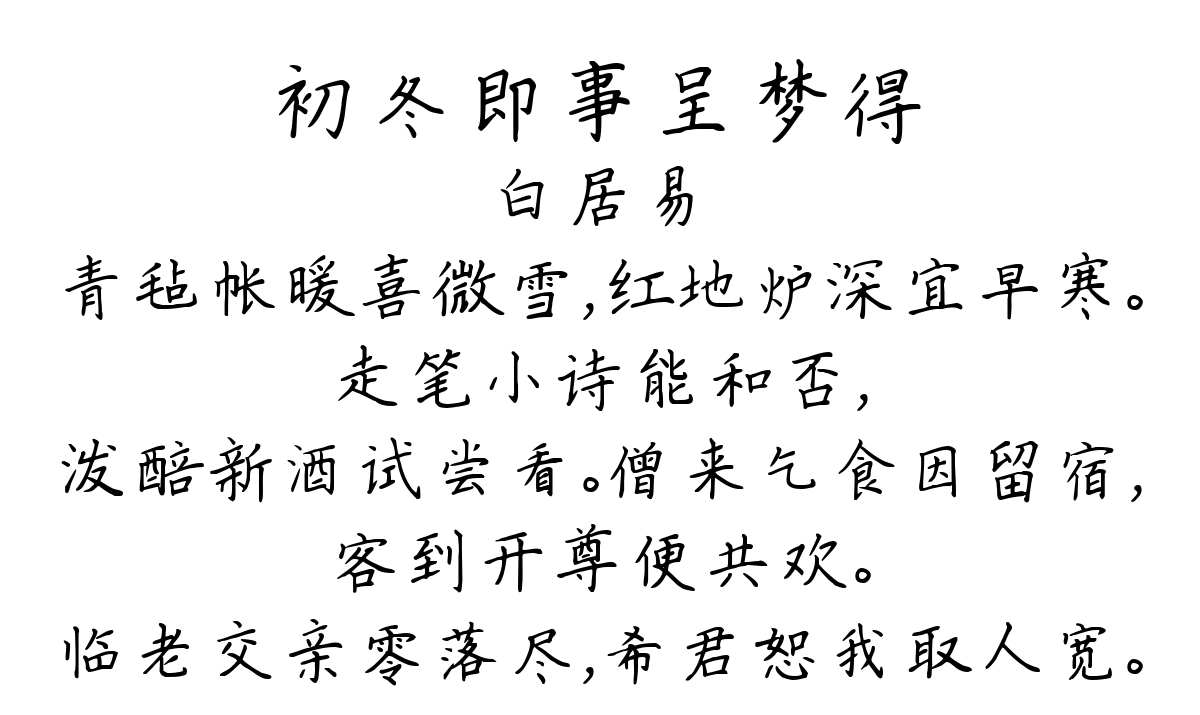 初冬即事呈梦得
白居易
青毡帐暖喜微雪,红地炉深宜早寒。
走笔小诗能和否,
泼醅新酒试尝看。僧来乞食因留宿,
客到开尊便共欢。
临老交亲零落尽,希君恕我取人宽。